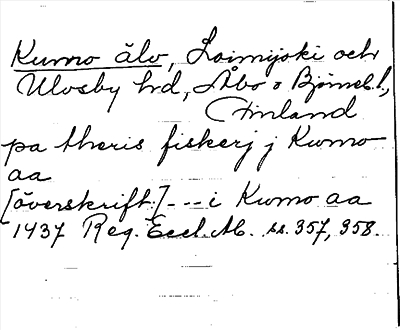 Kumo älv, Loimijoki och
Ulvsby hd, Åbo o Björneb. l.,
Finland
pa theris fiskerj j Kumo
aa
[överskrift:] --- i Kumo aa
1437 Reg. Eccl. Ab. ss. 357, 358.